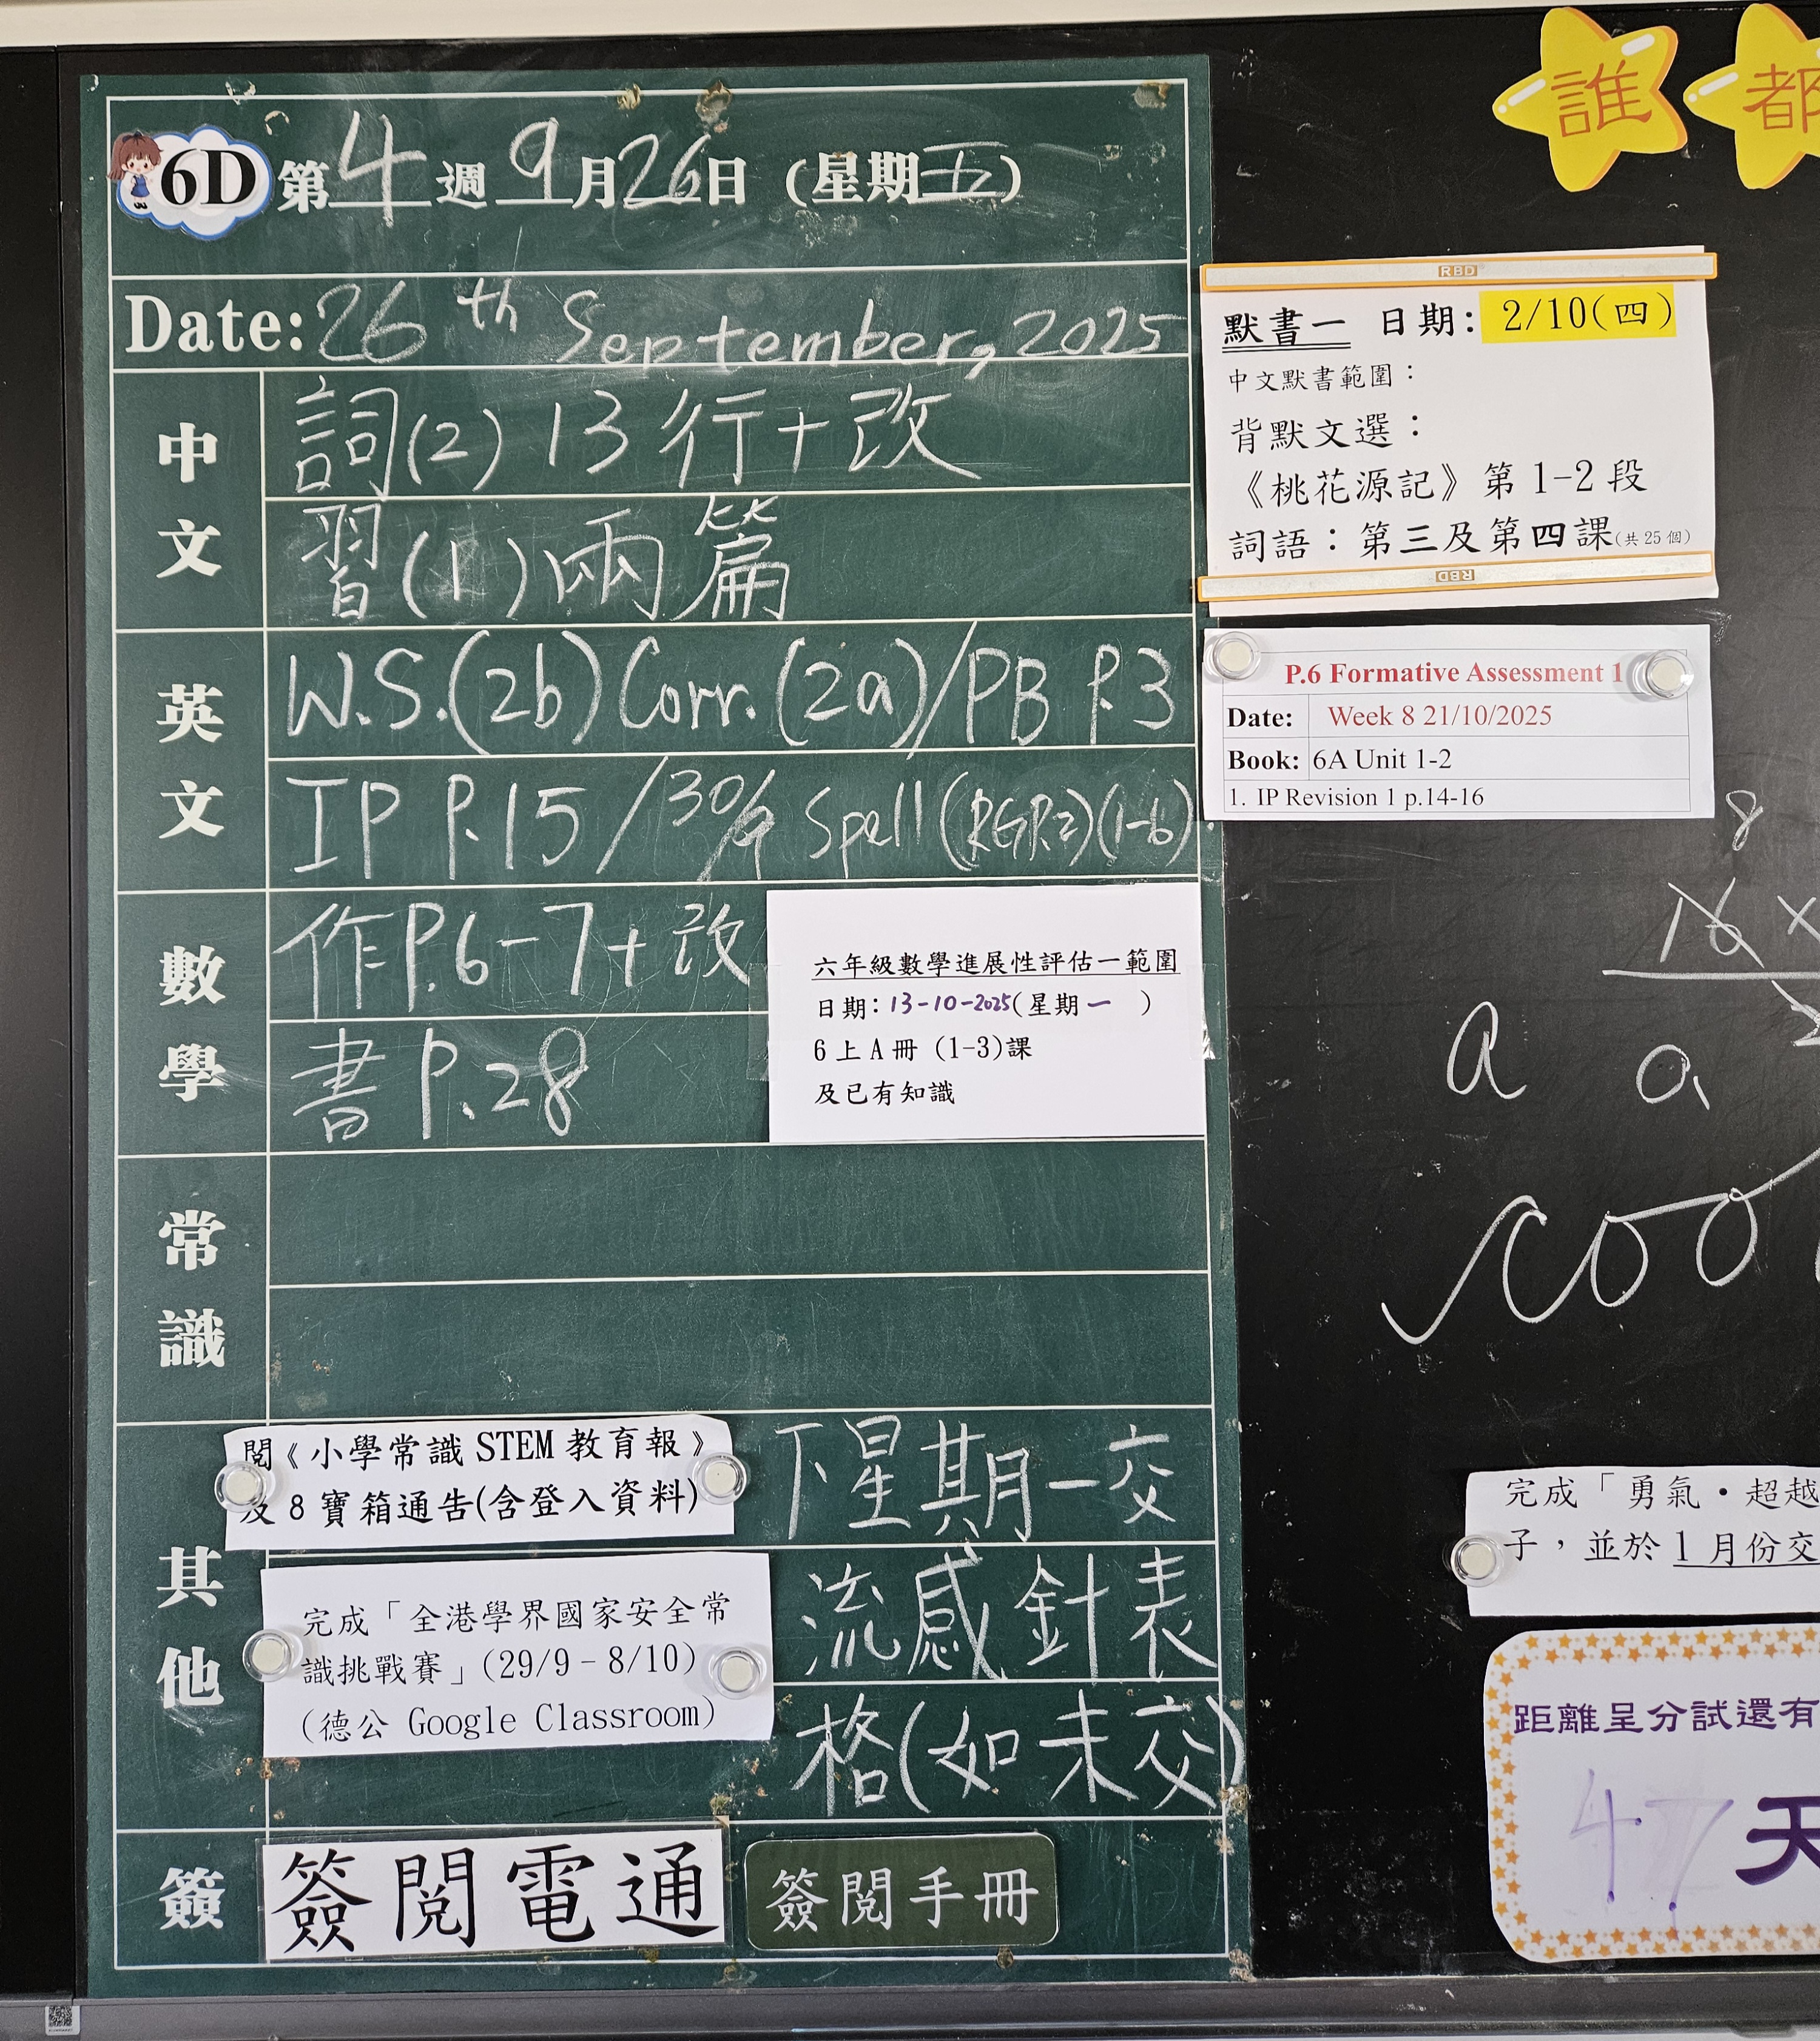 誰都
6D 第4週 9月26日 (星期五)
Date: 26th September, 2025
中文
詞(2) 13行+改
習(1)兩篇
英文
W.S.(2b) Corr.(2a)/PB P.3
IP P.15 / 30/9 Spell (RGP.2)(1-6)
數學
作P.6-7+改
書P.28
六年級數學進展性評估一範圍
日期:13-10-2025(星期一 )
6上A冊 (1-3)課
及已有知識
常識
其他
閱《小學常識 STEM 教育報》
及 8 寶箱通告(含登入資料)
完成「全港學界國家安全常
識挑戰賽」(29/9-8/10)
(德公 Google Classroom)
下星期一交
流感針表
格(如未交)
簽
簽閱電通
簽閱手冊
RBD
默書一 日期: 2/10(四)
中文默書範圍:
背默文選:
《桃花源記》第 1-2 段
詞語:第三及第四課(共 25 個)
RBD
P.6 Formative Assessment 1
Date: Week 8 21/10/2025
Book: 6A Unit 1-2
1. IP Revision 1 p.14-16
8
16 ×
a a
完成「勇氣·超越
子,並於 1 月份交
距離呈分試還有
47 天